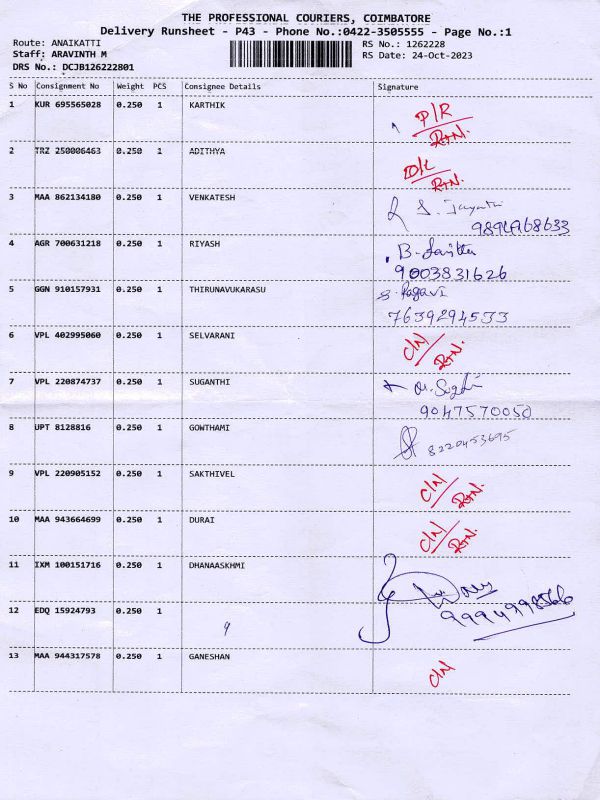 THE PROFESSIONAL COURIERS, COIMBATORE
Delivery Runsheet - P43 - Phone No.:0422-3505555 - Page No.:1
Route: ANAIKATTI RS No.: 1262228
Staff: ARAVINTH M RS Date: 24-Oct-2023
DRS No.: DCJB126222801
S No Consignment No Weight PCS Consignee Details Signature
1 KUR 695565028 0.250 1 KARTHIK P/R
RTN.
2 TRZ 250006463 0.250 1 ADITHYA D/L
RTN.
3 MAA 862134180 0.250 1 VENKATESH
4 AGR 700631218 0.250 1 RIYASH B.
9003831626
5 GGN 910157931 0.250 1 THIRUNAVUKARASU
7639294533
6 VPL 402995060 0.250 1 SELVARANI C/N
RTN.
7 VPL 220874737 0.250 1 SUGANTHI
9047570050
8 UPT 8128816 0.250 1 GOWTHAMI
8220453695
9 VPL 220905152 0.250 1 SAKTHIVEL C/N
RTN.
10 MAA 943664699 0.250 1 DURAI C/N
RTN.
11 IXM 100151716 0.250 1 DHANAASKHMI
12 EDQ 15924793 0.250 1
13 MAA 944317578 0.250 1 GANESHAN C/N